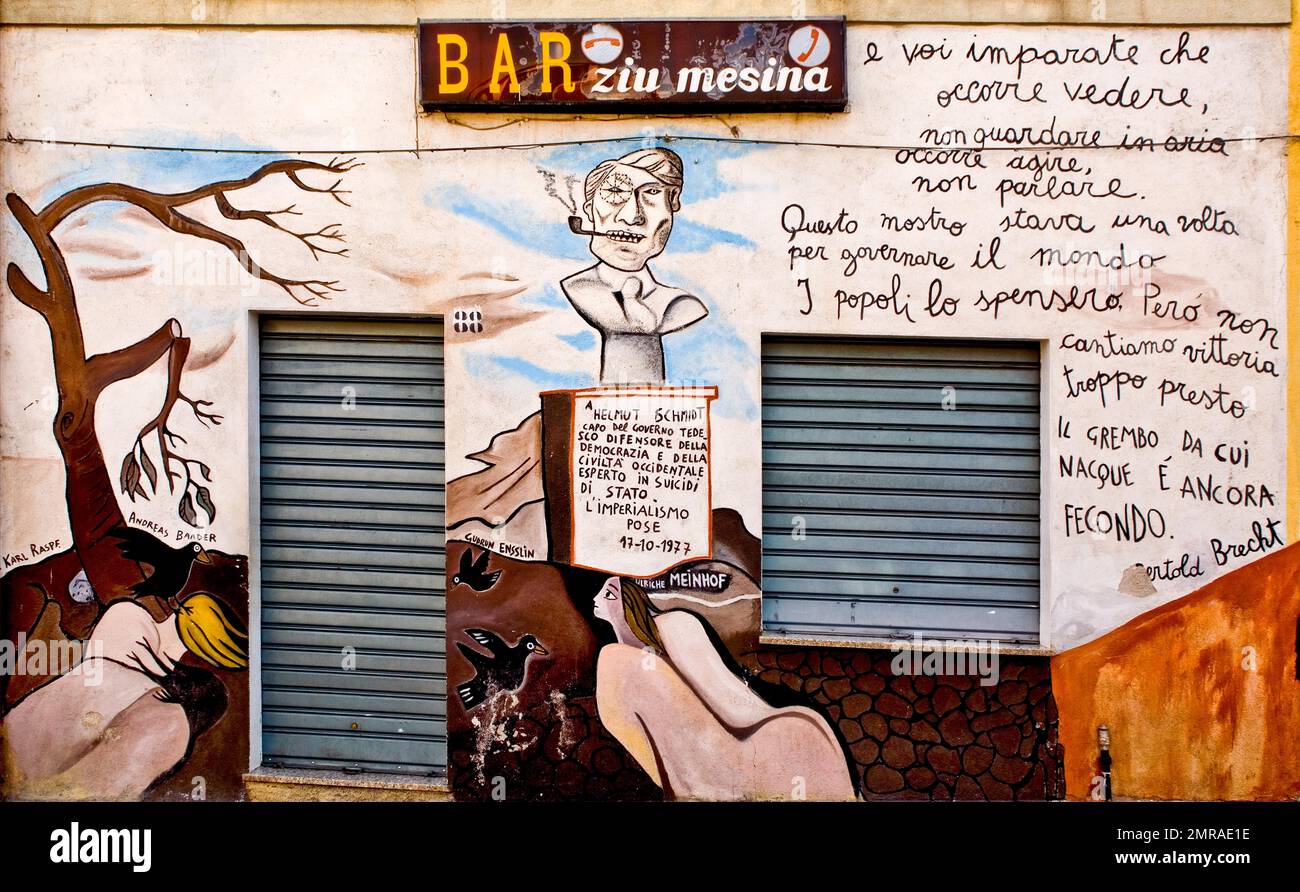 BAR ziu mesina
e voi imparate che
occorre vedere,
non guardare in aria
occorre agire,
non parlare.
Questo mostro stava una volta
per governare il mondo
I popoli lo spensero. Peró non
cantiamo vittoria
troppo presto
IL GREMBO DA CUI
NACQUE É ANCORA
FECONDO.
Bertold Brecht
88
A HELMUT SCHMIDT
CAPO DEL GOVERNO TEDE-
SCO DIFENSORE DELLA
DEMOCRAZIA E DELLA
CIVILTÀ OCCIDENTALE
ESPERTO IN SUICIDI
DI STATO
L'IMPERIALISMO
POSE
17-10-1977
KARL RASPE
ANDREAS BAADER
GUDRUN ENSSLIN
ULRICHE MEINHOF
alamy
Image ID: 2MRAE1E
www.alamy.com